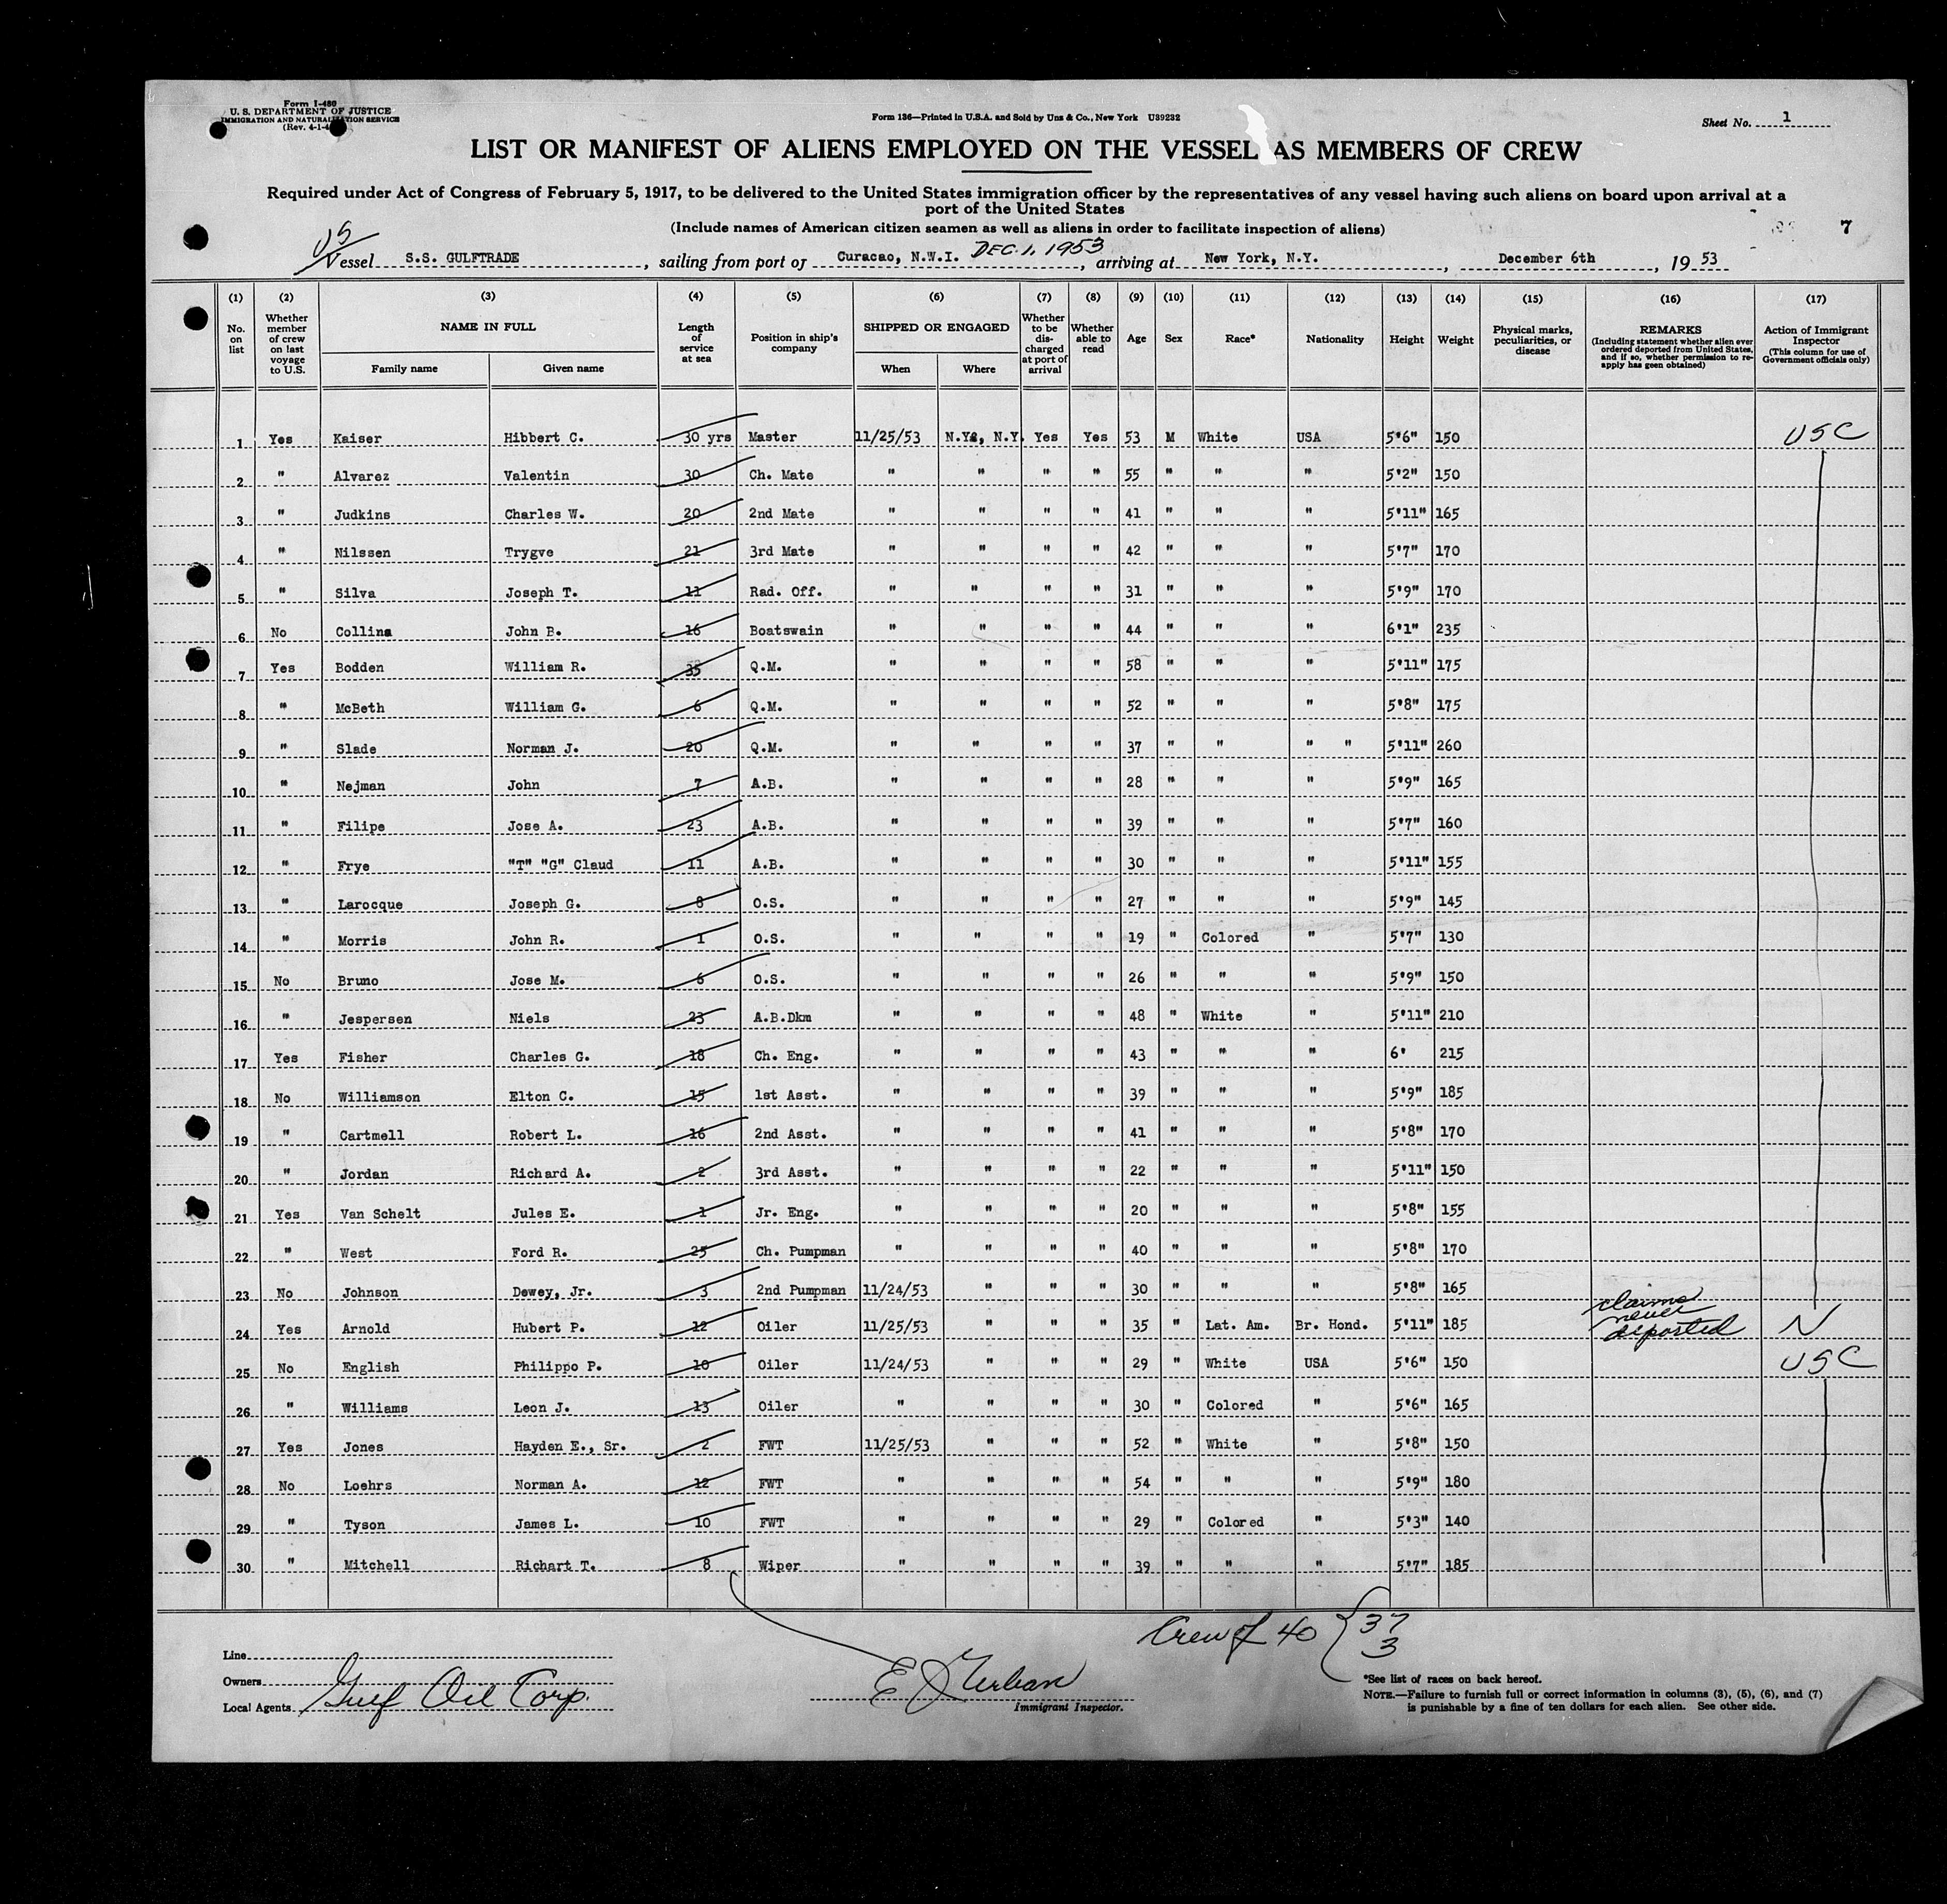 Form I-480
U. S. DEPARTMENT OF JUSTICE
IMMIGRATION AND NATURALIZATION SERVICE
(Rev. 4-1-4
Form 136—Printed in U.S.A. and Sold by Unz & Co., New York U39232
Sheet No. 1
LIST OR MANIFEST OF ALIENS EMPLOYED ON THE VESSEL AS MEMBERS OF CREW
Required under Act of Congress of February 5, 1917, to be delivered to the United States immigration officer by the representatives of any vessel having such aliens on board upon arrival at a
port of the United States
(Include names of American citizen seamen as well as aliens in order to facilitate inspection of aliens)
7
US
Vessel S.S. GULFTRADE, sailing from port of Curacao, N.W.I. DEC. 1, 1953, arriving at New York, N.Y., December 6th, 19 53
(1) (2) (3) (4) (5) (6) (7) (8) (9) (10) (11) (12) (13) (14) (15) (16) (17)
No. on list
Whether member of crew on last voyage to U.S.
NAME IN FULL
Family name
Given name
Length of service at sea
Position in ship's company
SHIPPED OR ENGAGED
When
Where
Whether to be discharged at port of arrival
Whether able to read
Age
Sex
Race*
Nationality
Height
Weight
Physical marks, peculiarities, or disease
REMARKS
(Including statement whether alien ever ordered deported from United States, and if so, whether permission to reapply has geen obtained)
Action of Immigrant Inspector
(This column for use of Government officials only)
1 Yes Kaiser Hibbert C. 30 yrs Master 11/25/53 N.Y&, N.Y. Yes Yes 53 M White USA 5'6" 150 USC
2 " Alvarez Valentin 30 Ch. Mate " " " " 55 " " " 5'2" 150
3 " Judkins Charles W. 20 2nd Mate " " " " 41 " " " 5'11" 165
4 " Nilssen Trygve 21 3rd Mate " " " " 42 " " " 5'7" 170
5 " Silva Joseph T. 11 Rad. Off. " " " " 31 " " " 5'9" 170
6 No Collins John B. 16 Boatswain " " " " 44 " " " 6'1" 235
7 Yes Bodden William R. 35 Q.M. " " " " 58 " " " 5'11" 175
8 " McBeth William G. 6 Q.M. " " " " 52 " " " 5'8" 175
9 " Slade Norman J. 20 Q.M. " " " " 37 " " " " 5'11" 260
10 " Nejman John 7 A.B. " " " " 28 " " " 5'9" 165
11 " Filipe Jose A. 23 A.B. " " " " 39 " " " 5'7" 160
12 " Frye "T" "G" Claud 11 A.B. " " " " 30 " " " 5'11" 155
13 " Larocque Joseph G. 8 O.S. " " " " 27 " " " 5'9" 145
14 " Morris John R. 1 O.S. " " " " 19 " Colored " 5'7" 130
15 No Bruno Jose M. 6 O.S. " " " " 26 " " " 5'9" 150
16 " Jespersen Niels 23 A.B.Dkm " " " " 48 " White " 5'11" 210
17 Yes Fisher Charles G. 18 Ch. Eng. " " " " 43 " " " 6' 215
18 No Williamson Elton C. 15 1st Asst. " " " " 39 " " " 5'9" 185
19 " Cartmell Robert L. 16 2nd Asst. " " " " 41 " " " 5'8" 170
20 " Jordan Richard A. 2 3rd Asst. " " " " 22 " " " 5'11" 150
21 Yes Van Schelt Jules E. 1 Jr. Eng. " " " " 20 " " " 5'8" 155
22 " West Ford R. 25 Ch. Pumpman " " " " 40 " " " 5'8" 170
23 No Johnson Dewey, Jr. 3 2nd Pumpman 11/24/53 " " " 30 " " " 5'8" 165
24 Yes Arnold Hubert P. 12 Oiler 11/25/53 " " " 35 " Lat. Am. Br. Hond. 5'11" 185 claims never deported N
25 No English Philippo P. 10 Oiler 11/24/53 " " " 29 " White USA 5'6" 150 USC
26 " Williams Leon J. 13 Oiler " " " " 30 " Colored " 5'6" 165
27 Yes Jones Hayden E., Sr. 2 FWT 11/25/53 " " " 52 " White " 5'8" 150
28 No Loehrs Norman A. 12 FWT " " " " 54 " " " 5'9" 180
29 " Tyson James L. 10 FWT " " " " 29 " Colored " 5'3" 140
30 " Mitchell Richart T. 8 Wiper " " " " 39 " " " 5'7" 185
Crew of 40 { 37
3
Line
Owners
Local Agents Gulf Oil Corp.
Immigrant Inspector.
*See list of races on back hereof.
NOTE.—Failure to furnish full or correct information in columns (3), (5), (6), and (7)
is punishable by a fine of ten dollars for each alien. See other side.